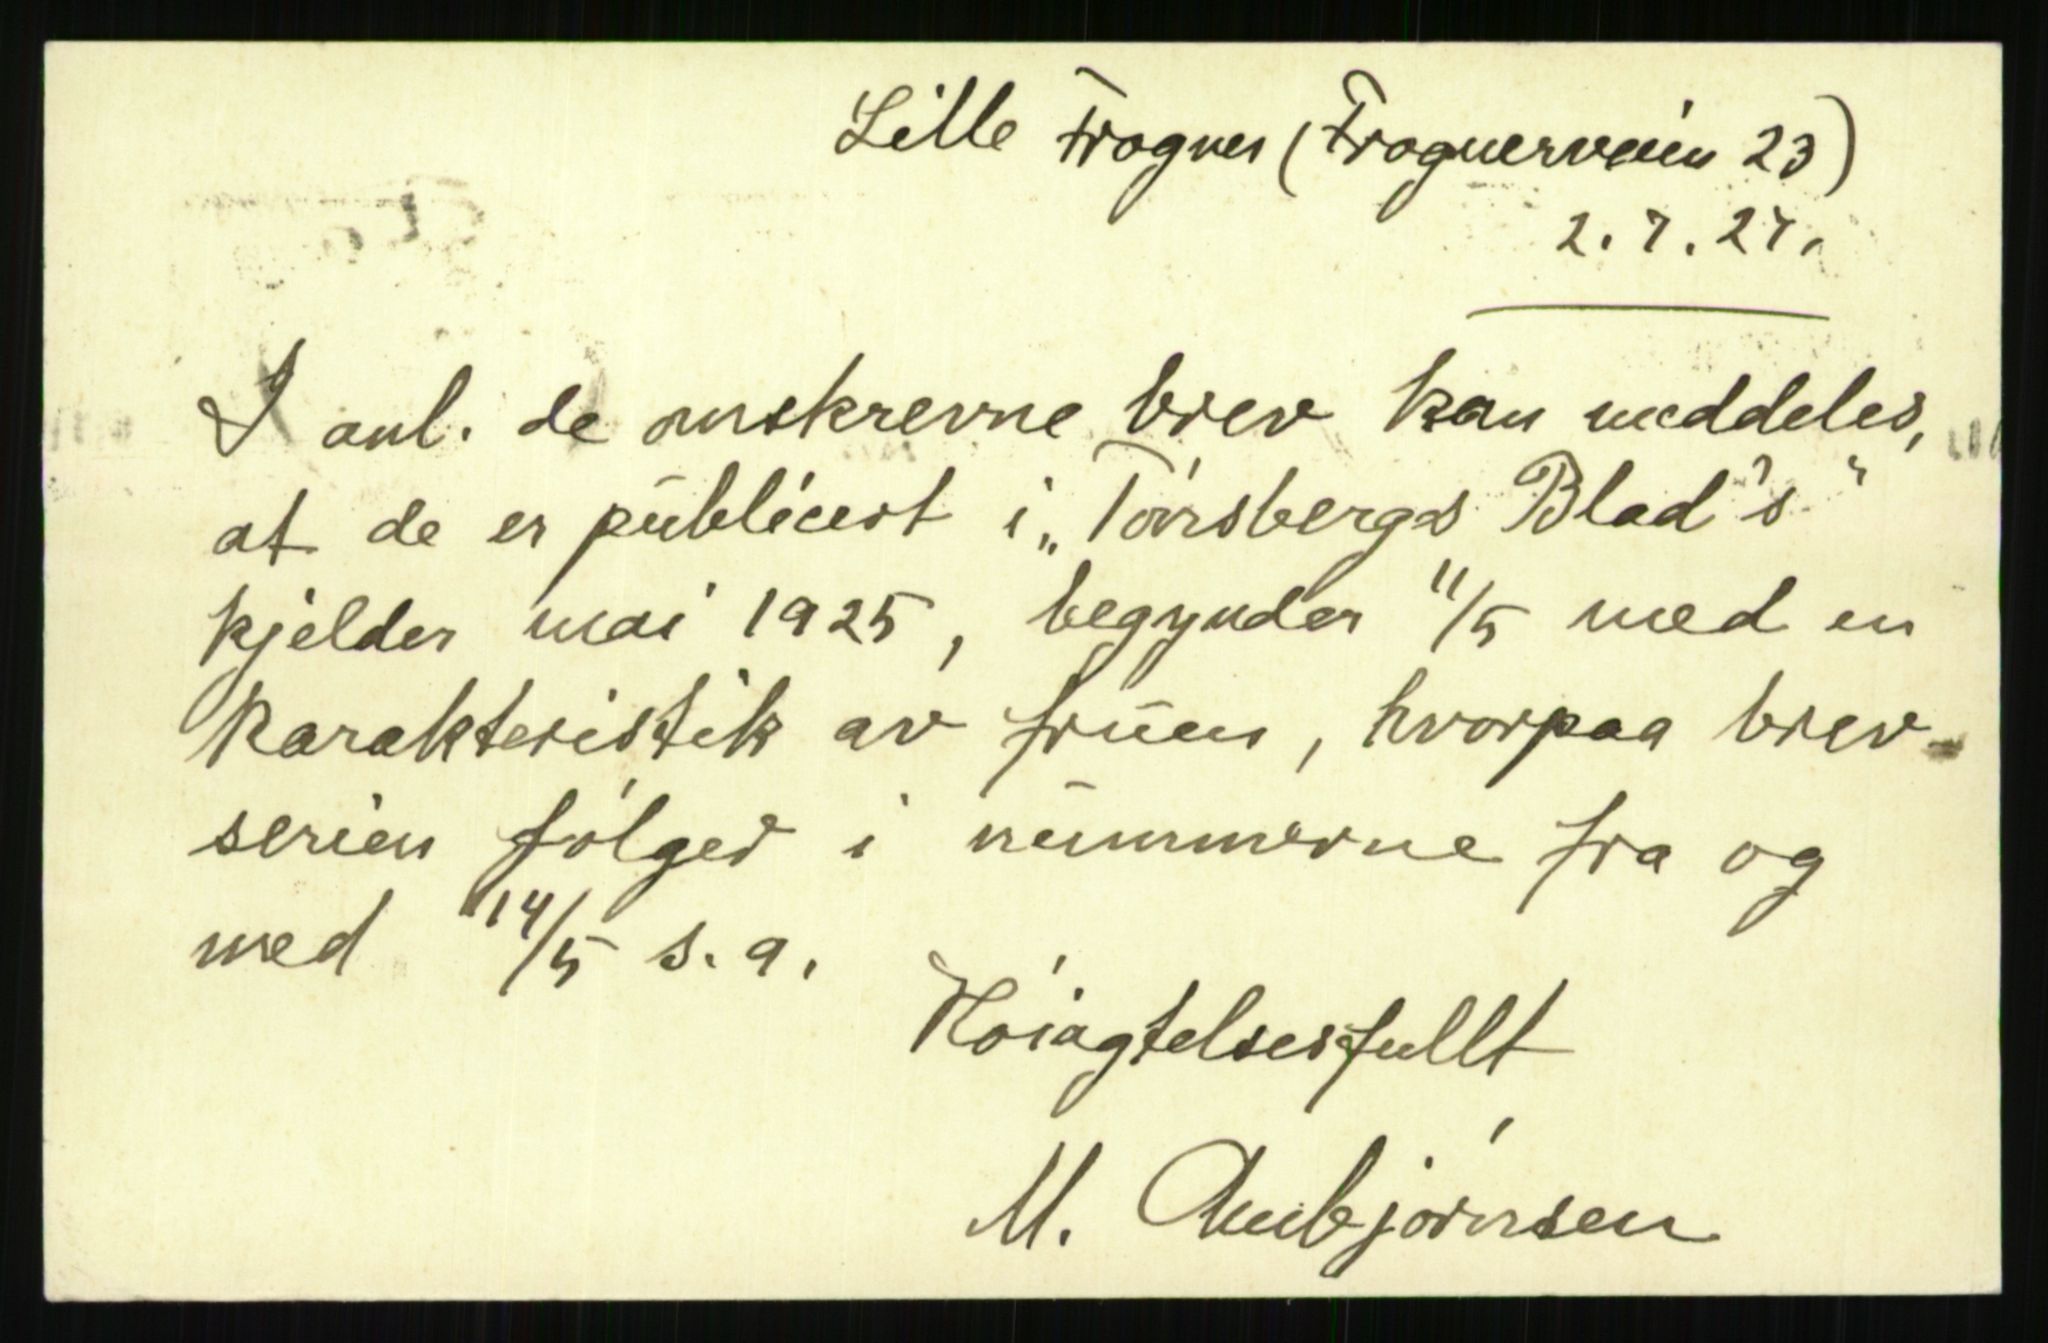 Lille Frogner (Frognerveien 23)
2.7.27.
I anl. de omskrevne brev kan meddeles,
at de er publicert i „Tønsbergs Blad's"
kjelder mai 1925, begynder 11/5 med en
karakteristik av fruen, hvorpaa brev-
serien følger i nummerne fra og
med 14/5 s.a.
Høiagtelsesfullt
M. Ambjørnsen